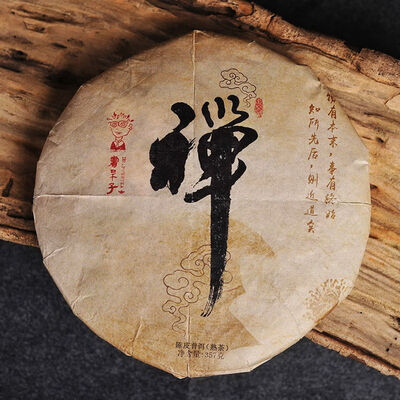 禅
物有本末,事有终始
知所先后,则近道矣
書呆子
陈皮普洱(熟茶)
净含量:357克